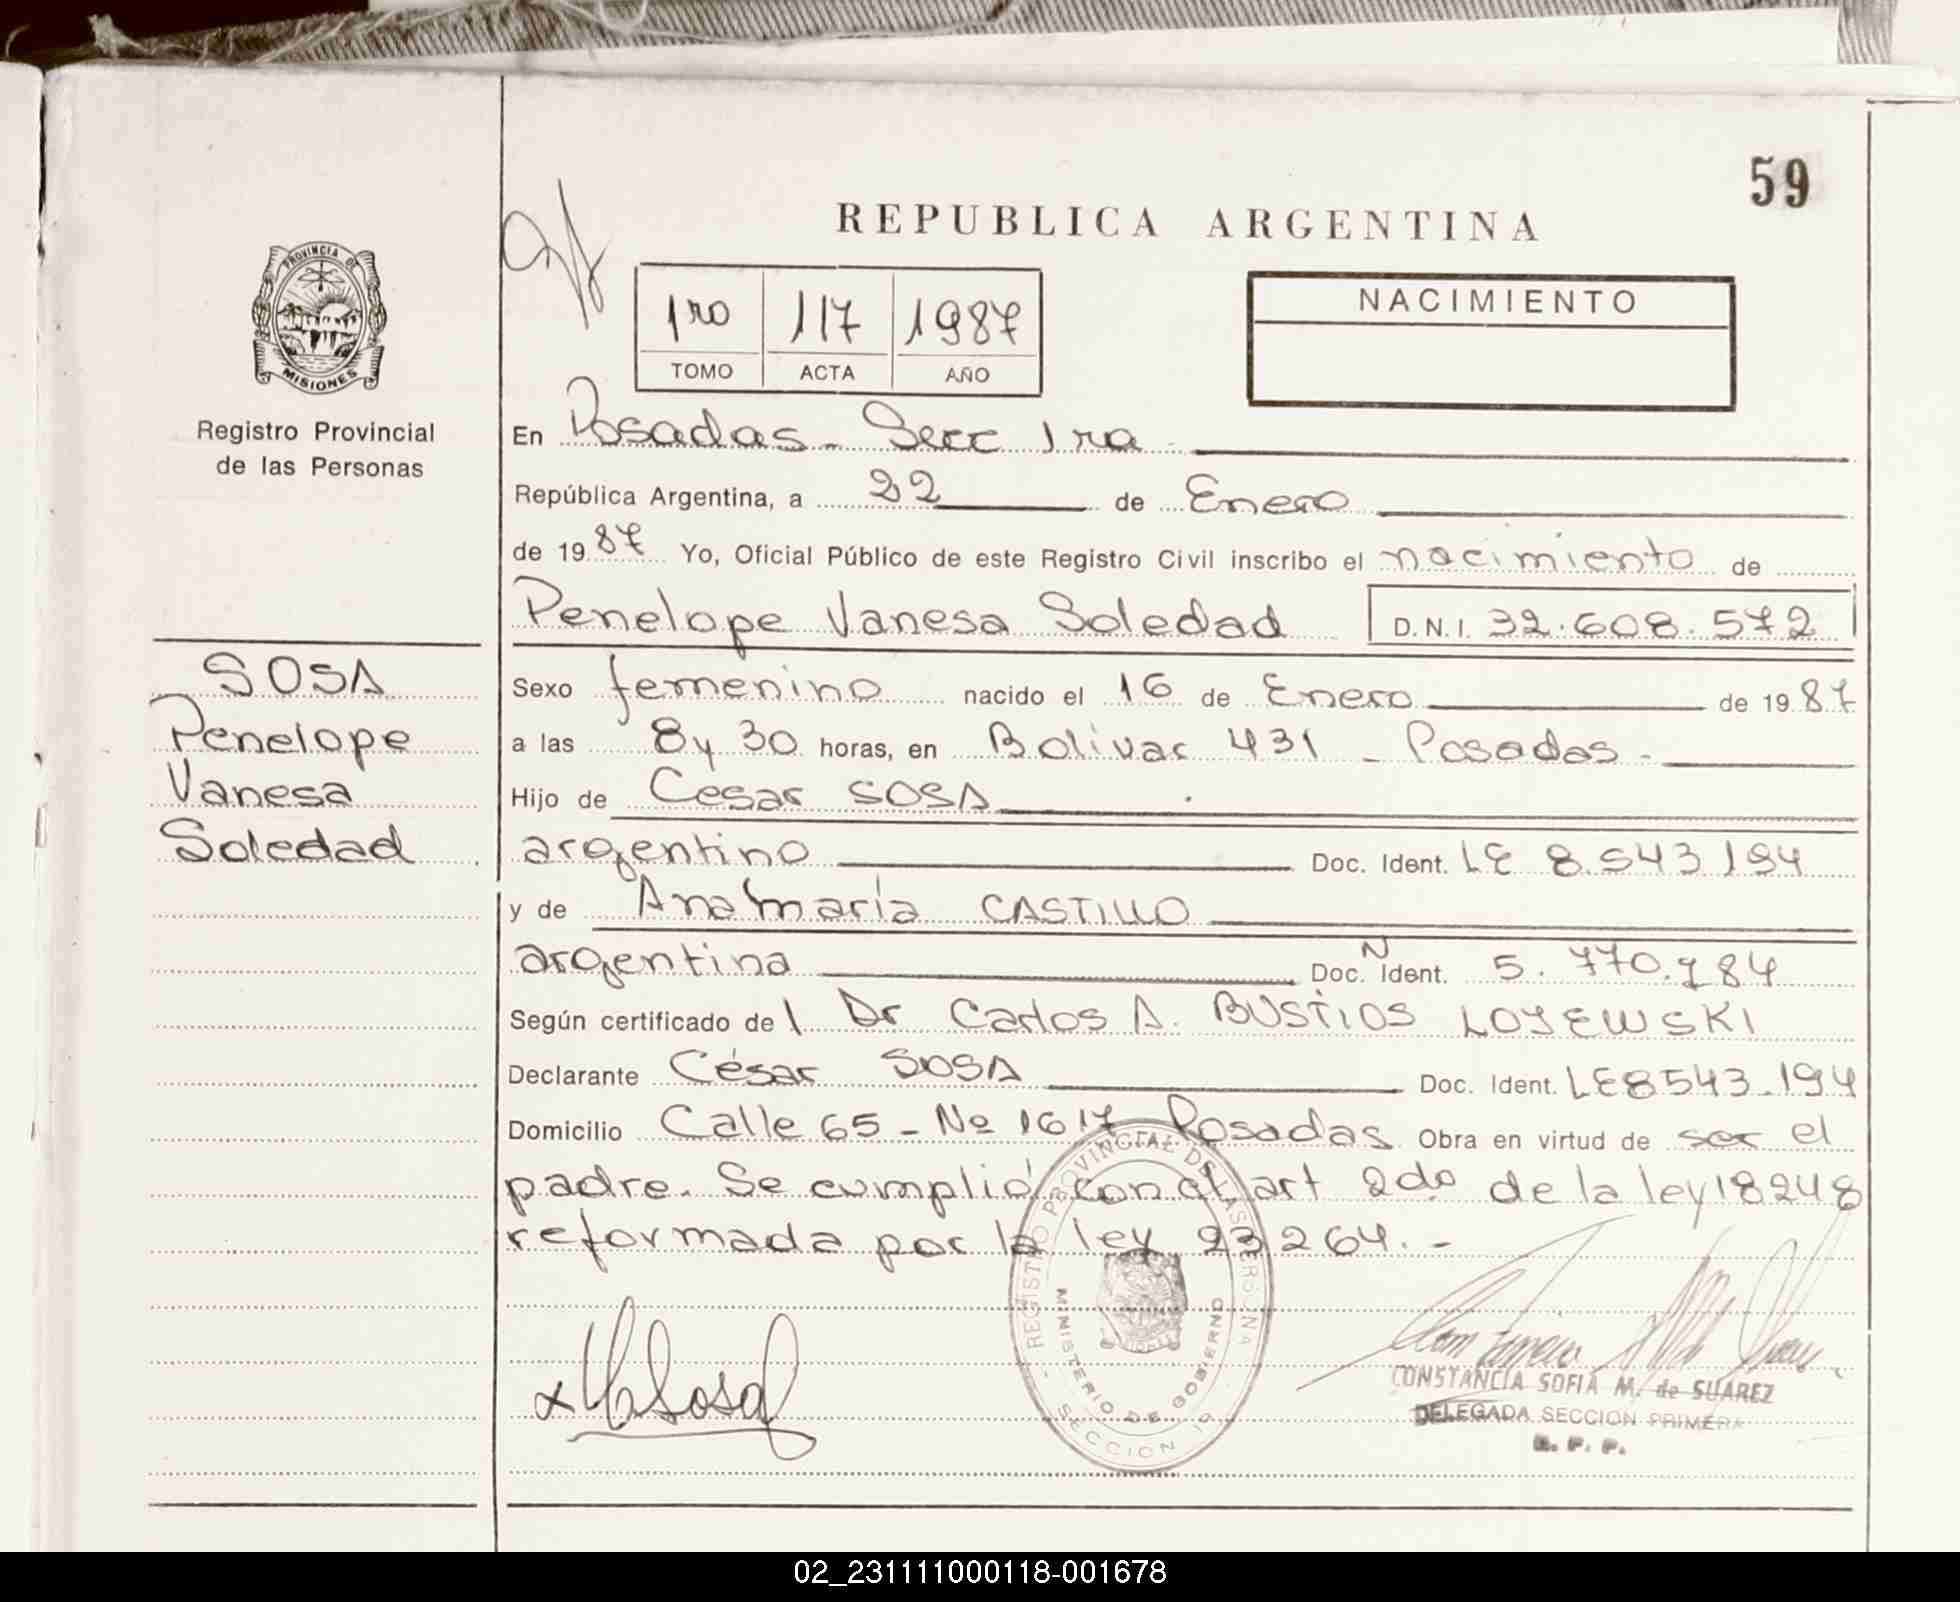 59
REPUBLICA ARGENTINA
PROVINCIA DE
MISIONES
Registro Provincial
de las Personas
1ro 117 1987
TOMO ACTA AÑO
NACIMIENTO
En Posadas - Secc 1ra
República Argentina, a 22 de Enero
de 1987 Yo, Oficial Público de este Registro Civil inscribo el nacimiento de
Penelope Vanesa Soledad D.N.I. 32.608.572
SOSA
Penelope
Vanesa
Soledad
Sexo femenino nacido el 16 de Enero de 1987
a las 8 y 30 horas, en Bolivar 431 - Posadas -
Hijo de Cesar SOSA
argentino Doc. Ident. LE 8.543.194
y de Ana María CASTILLO
argentina Doc. Ident. N 5.770.784
Según certificado del Dr Carlos A. BUSTIOS LOJEWSKI
Declarante César SOSA Doc. Ident. LE 8543.194
Domicilio Calle 65 - Nº 1617 Posadas Obra en virtud de ser el
padre. Se cumplió con el art 2do de la ley 18248
reformada por la ley 23264. -
REGISTRO PROVINCIAL DE LAS PERSONAS
MINISTERIO DE GOBIERNO
SECCION 1ª
Sosa
CONSTANCIA SOFIA M. de SUAREZ
DELEGADA SECCION PRIMERA
R. P. P.
02_231111000118-001678